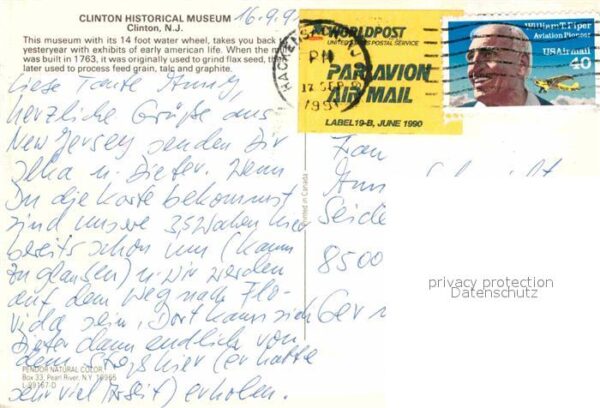 CLINTON HISTORICAL MUSEUM
Clinton, N.J.
This museum with its 14 foot water wheel, takes you back
yesteryear with exhibits of early american life. When the
was built in 1763, it was originally used to grind flax seed,
later used to process feed grain, talc and graphite.
16.9.9
Liebe Tante Anny,
herzliche Grüße aus
New Jersey senden Dir
Ilka u. Dieter. Wenn
Du die Karte bekommst
sind unsere 3,5 Wochen hier
bereits schon um (kaum
zu glauben) u. wir werden
auf dem Weg nach Flo-
rida sein. Dort kann sich
Dieter dann endlich von
dem Stress hier (er hatte
sehr viel Arbeit) erholen.
PENDOR NATURAL COLOR
Box 33, Pearl River, N.Y. 10965
Printed in Canada
HACKENSACK
PM
17 SEP
199
WORLDPOST
UNITED STATES POSTAL SERVICE
PAR AVION
AIR MAIL
LABEL 19-B, JUNE 1990
William T. Piper
Aviation Pioneer
USAirmail
40
Frau
Seide
8500
Ger
privacy protection
Datenschutz